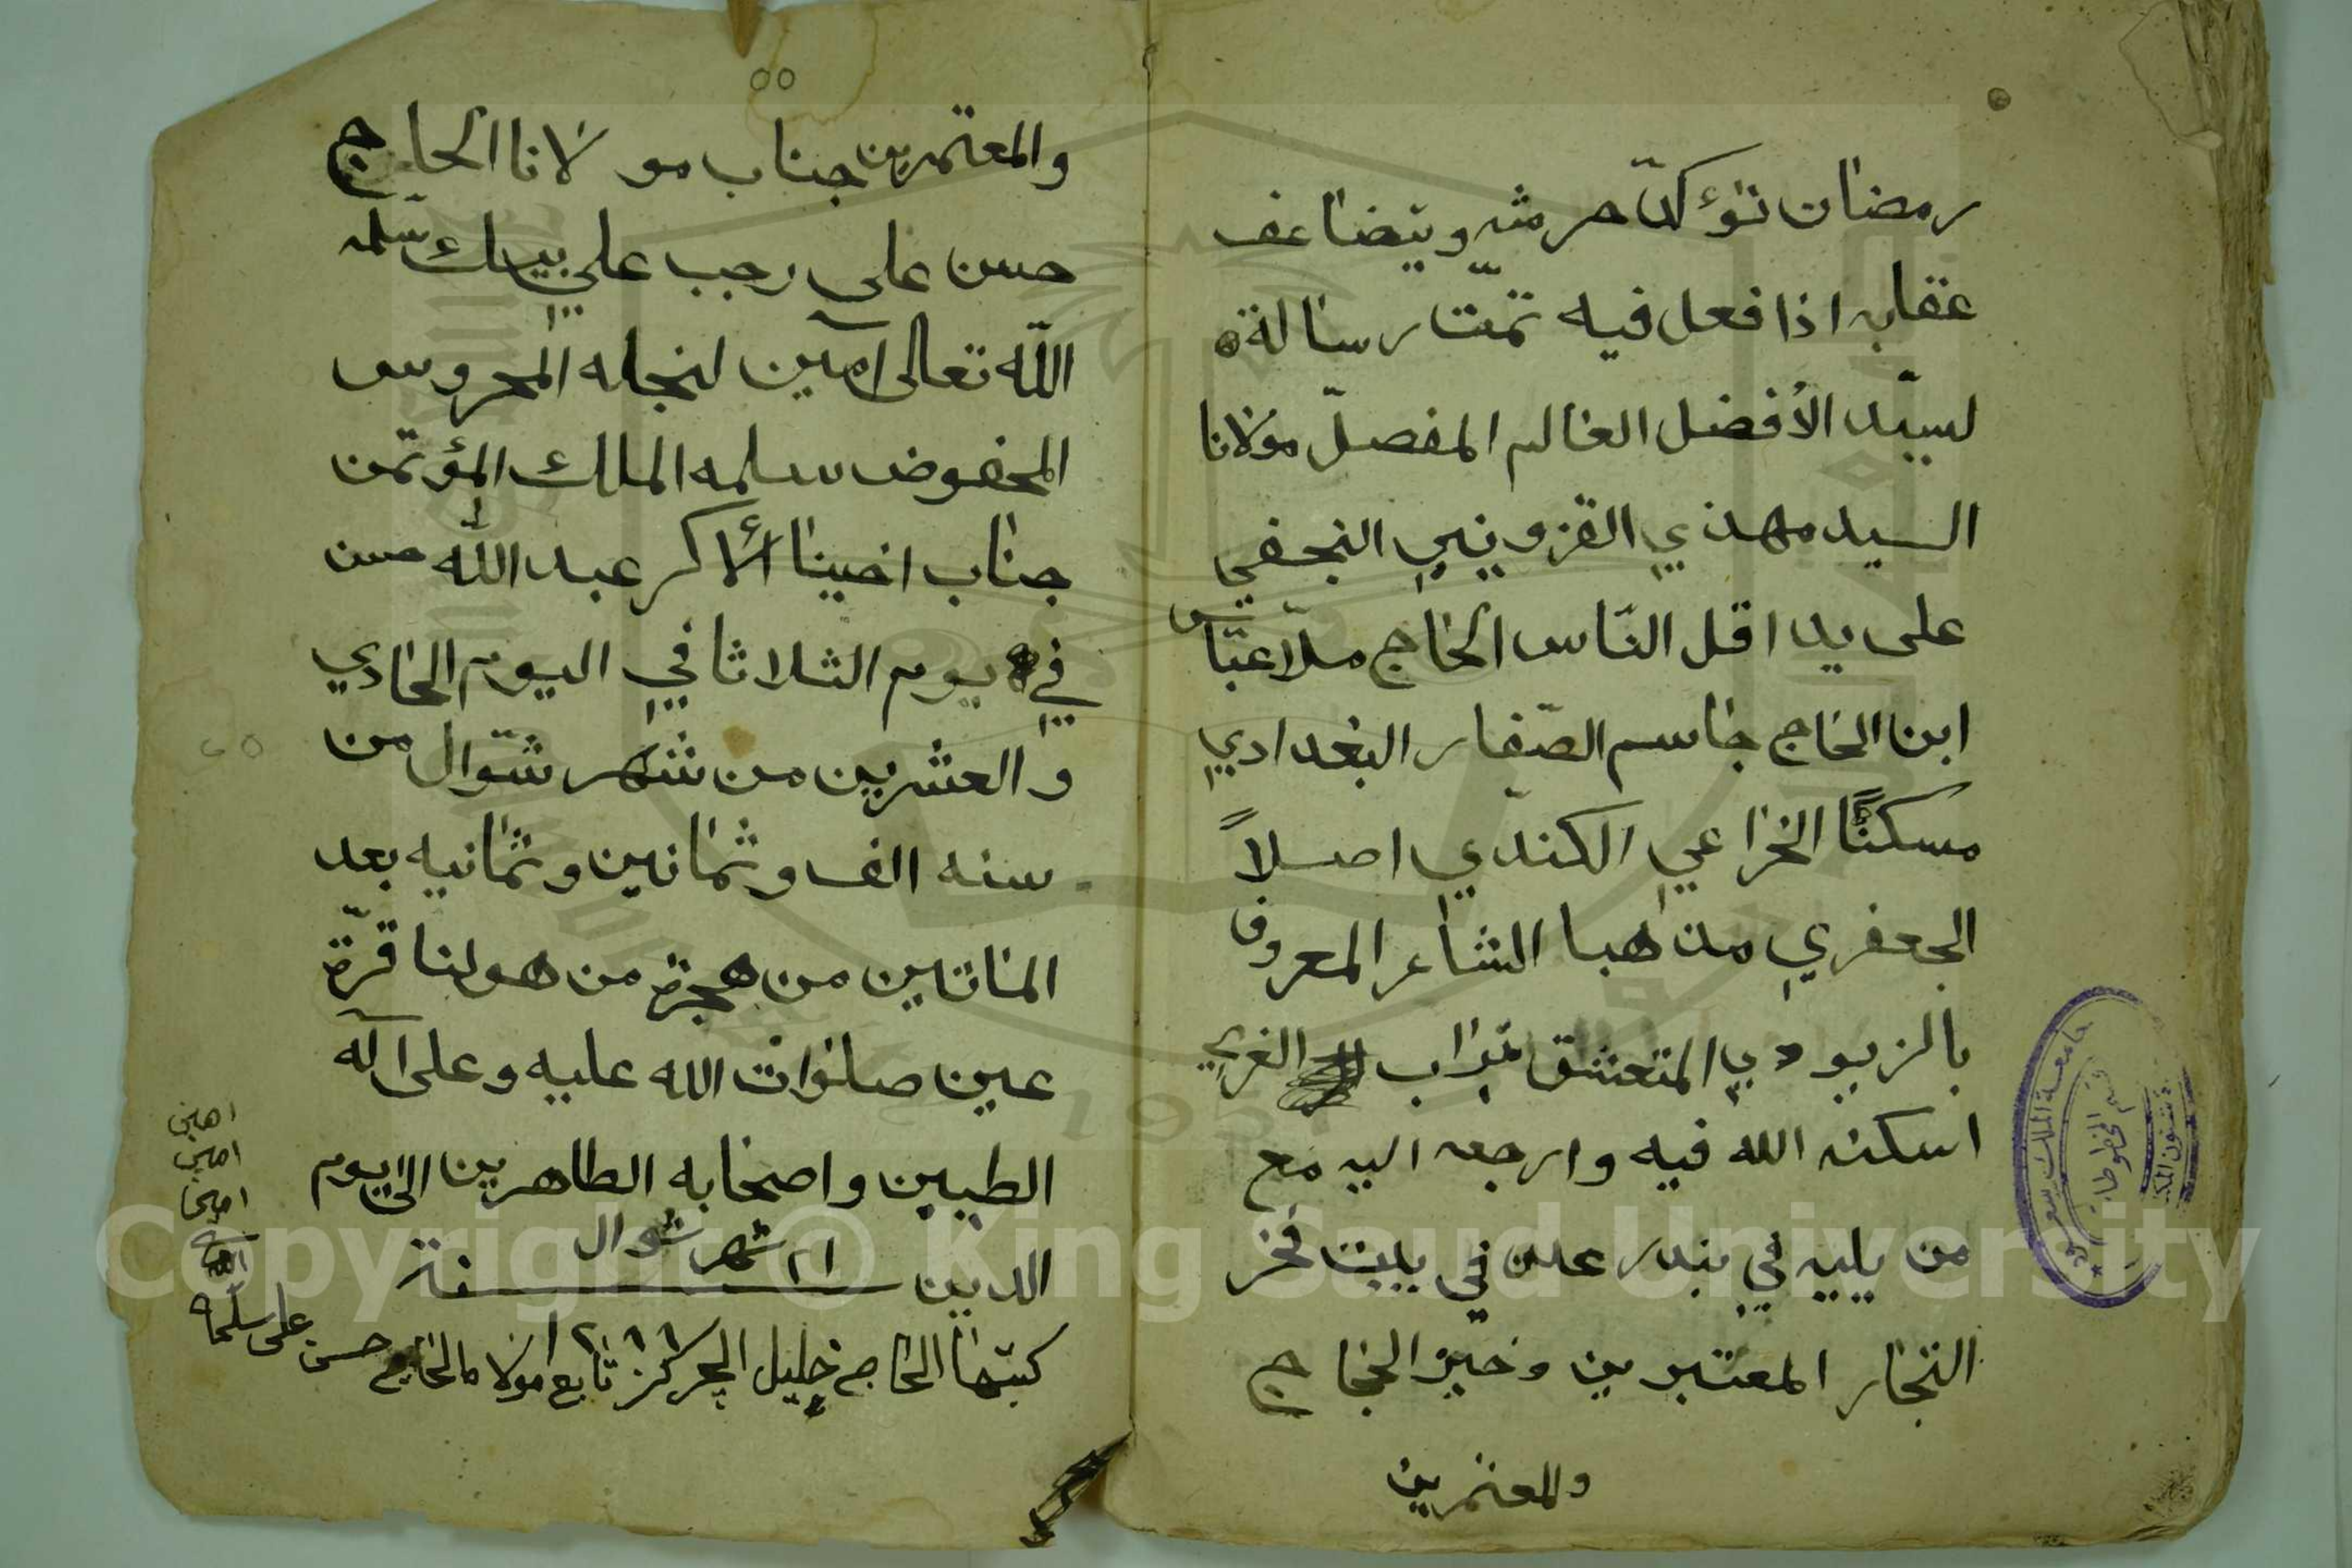 رمضان تؤكد حرمته ويتضاعف
عقابه اذا فعل فيه تمّت رسالة
لسيّد الأفضل العالم المفصلّ مولانا
السيد مهدي القزويني النجفي
على يد اقل النّاس الحاج ملّا عبّاس
ابن الحاج جاسم الصّفار البغدادي
مسكنًا الخزاعي الكندي اصلاً
الجعفري مذهبا الشاعر المعروف
بالزيودي المتعشق بتراب الغري
اسكنه الله فيه وارجعه اليه مع
من يليه في بندر عدن في بيت فخر
التجار المعتبرين وخير الحجاج
والمعتمرين
والمعتمرين جناب مولانا الحاج
حسن علي رجب علي بيك سلمه
اللّه تعالى آمين لنجله المحروس
المحفوض سلمه الملك المؤتمن
جناب اخينا الأكر عبد الله حسن
في يوم الثلاثا في اليوم الحادي
والعشرين من شهر شوّال من
سنه الف وثمانين وثمانيه بعد
المائتين من هجرة من هو لنا قرّة
عين صلوات الله عليه وعلى آله
الطيبين واصحابه الطاهرين الى يوم
الدين ٢١ شهر شوال سنة
١٢٨٨
كتبتها الحاج خليل الچركز تابع مولانا الحاج حسن علي سلمه
امين
امين
امين
جامعة الملك سعود
قسم المخطوطات
Copyright © King Saud University
1957